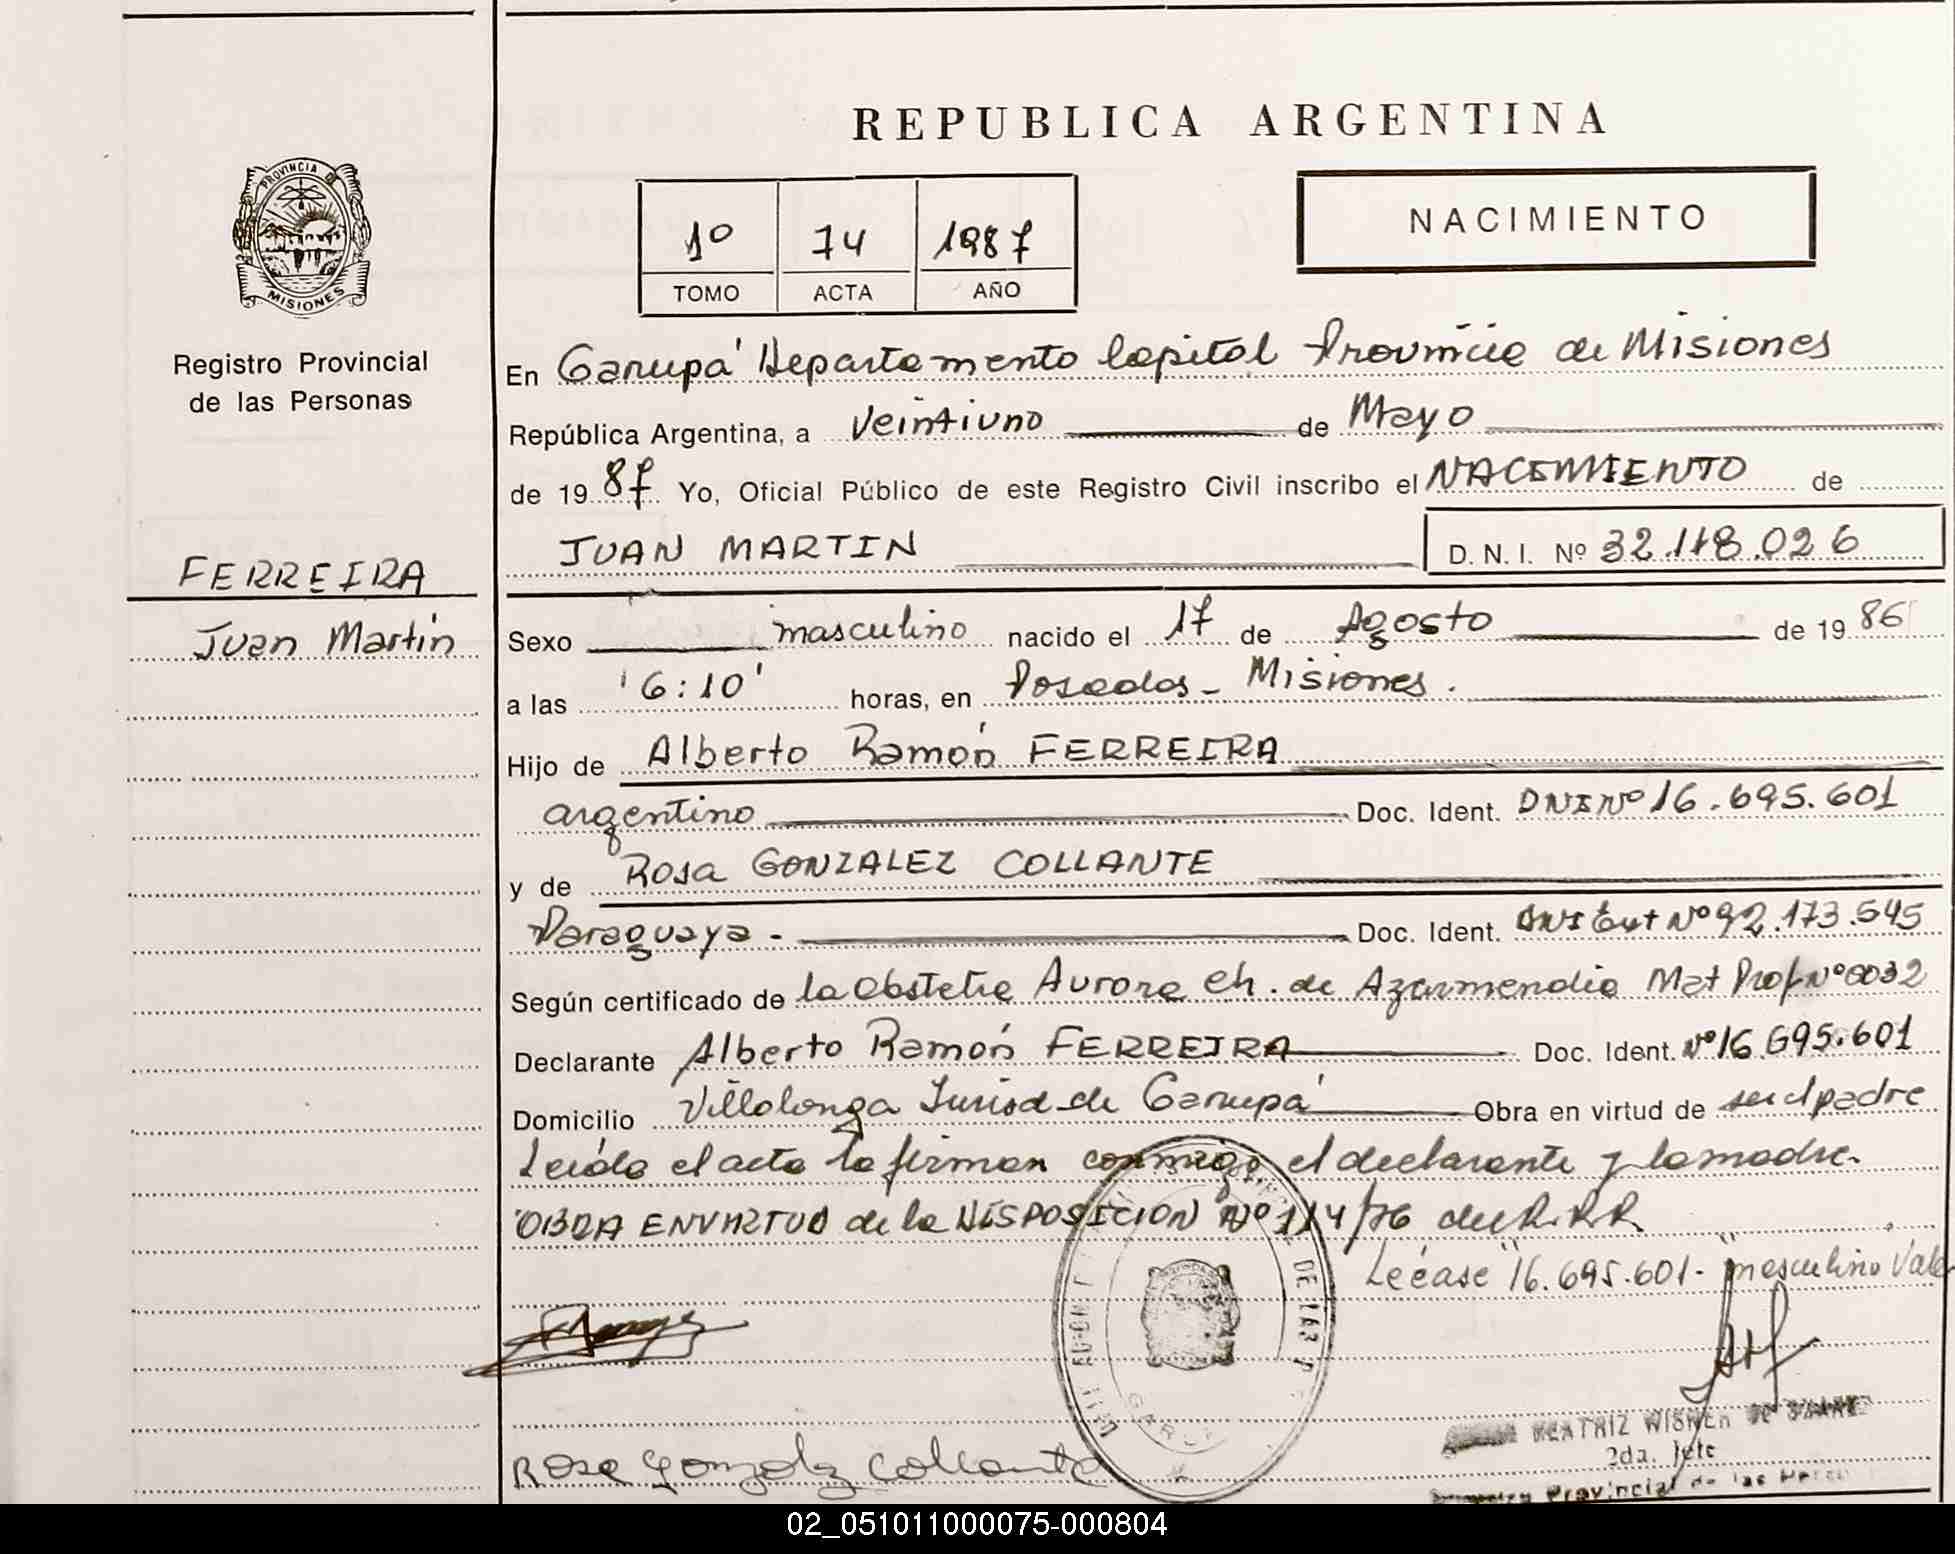 REPUBLICA ARGENTINA
PROVINCIA DE
MISIONES
Registro Provincial
de las Personas
FERREIRA
Juan Martín
1º 74 1987
TOMO ACTA AÑO
NACIMIENTO
En Garupá Departamento Capital Provincia de Misiones
República Argentina, a Veintiuno de Mayo
de 1987 Yo, Oficial Público de este Registro Civil inscribo el NACIMIENTO de
JUAN MARTIN D. N. I. Nº 32.118.026
Sexo masculino nacido el 17 de Agosto de 1986
a las '6:10' horas, en Posadas - Misiones.
Hijo de Alberto Ramón FERREIRA
argentino Doc. Ident. DNI Nº 16.695.601
y de Rosa GONZALEZ COLLANTE
Paraguaya - Doc. Ident. DNI Ext Nº 92.173.545
Según certificado de la obstetra Aurora Ch. de Azarmendia Mat Prof Nº 0032
Declarante Alberto Ramón FERREIRA Doc. Ident. Nº 16.695.601
Domicilio Villalonga Jurisd. de Garupá Obra en virtud de ser el padre
Leída el acta la firman conmigo el declarante y la madre.
OBRA EN VIRTUD de la DISPOSICION Nº 114/76 del R.P.P.
Leéase "16.695.601 - "masculino Vale
Rosa Gonzalez Collante
BEATRIZ WISNER DE SUAREZ
2da. Jefe
Provincial de las
02_051011000075-000804